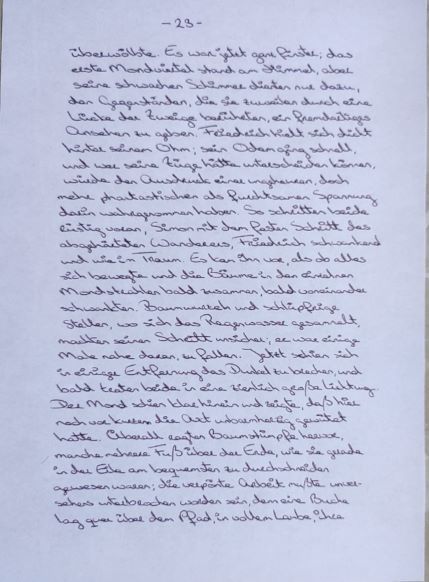 -23-
überwölbte. Es war jetzt ganz finster; das
erste Mondviertel stand am Himmel, aber
seine schwachen Schimmer dienten nur dazu,
den Gegenständen, die sie zuweilen durch eine
Lücke der Zweige berührten, ein fremdartiges
Ansehen zu geben. Friedrich hielt sich dicht
hinter seinem Ohm; sein Odem ging schnell,
und wer seine Züge hätte unterscheiden können,
würde den Ausdruck einer ungeheuren, doch
mehr phantastischen als furchtsamen Spannung
darin wahrgenommen haben. So schritten beide
rüstig voran, Simon mit dem festen Schritt des
abgehärteten Wanderers, Friedrich schwankend
und wie im Traum. Es kam ihm vor, als ob alles
sich bewegte und die Bäume in den einzelnen
Mondstrahlen bald zusammen, bald voneinander
schwankten. Baumwurzeln und schlüpfrige
Stellen, wo sich das Regenwasser gesammelt,
machten seinen Schritt unsicher; er war einige
Male nahe daran, zu fallen. Jetzt schien sich
in einiger Entfernung das Dunkel zu brechen, und
bald traten beide in eine ziemlich große Lichtung.
Der Mond schien klar hinein und zeigte, daß hier
noch vor kurzem die Axt unbarmherzig gewütet
hatte. Überall ragten Baumstümpfe hervor,
manche mehrere Fuß über der Erde, wie sie gerade
in der Eile am bequemsten zu durchschneiden
gewesen waren; die verpönte Arbeit mußte unver-
sehens unterbrochen worden sein, denn eine Buche
lag quer über dem Pfad, in vollem Laube, ihre